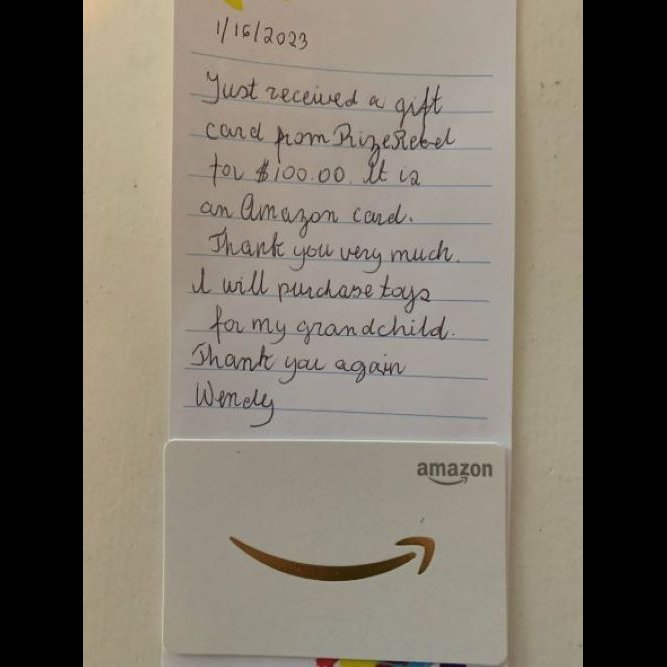 1/16/2023
Just received a gift
card from PrizeRebel
for $100.00. It is
an Amazon card.
Thank you very much.
I will purchase toys
for my grandchild.
Thank you again
Wendy
amazon